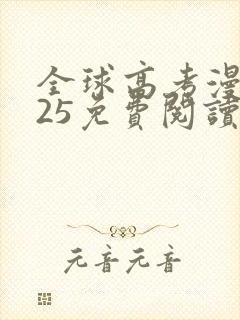 全球高考漫
25免費閱讀
元音元音